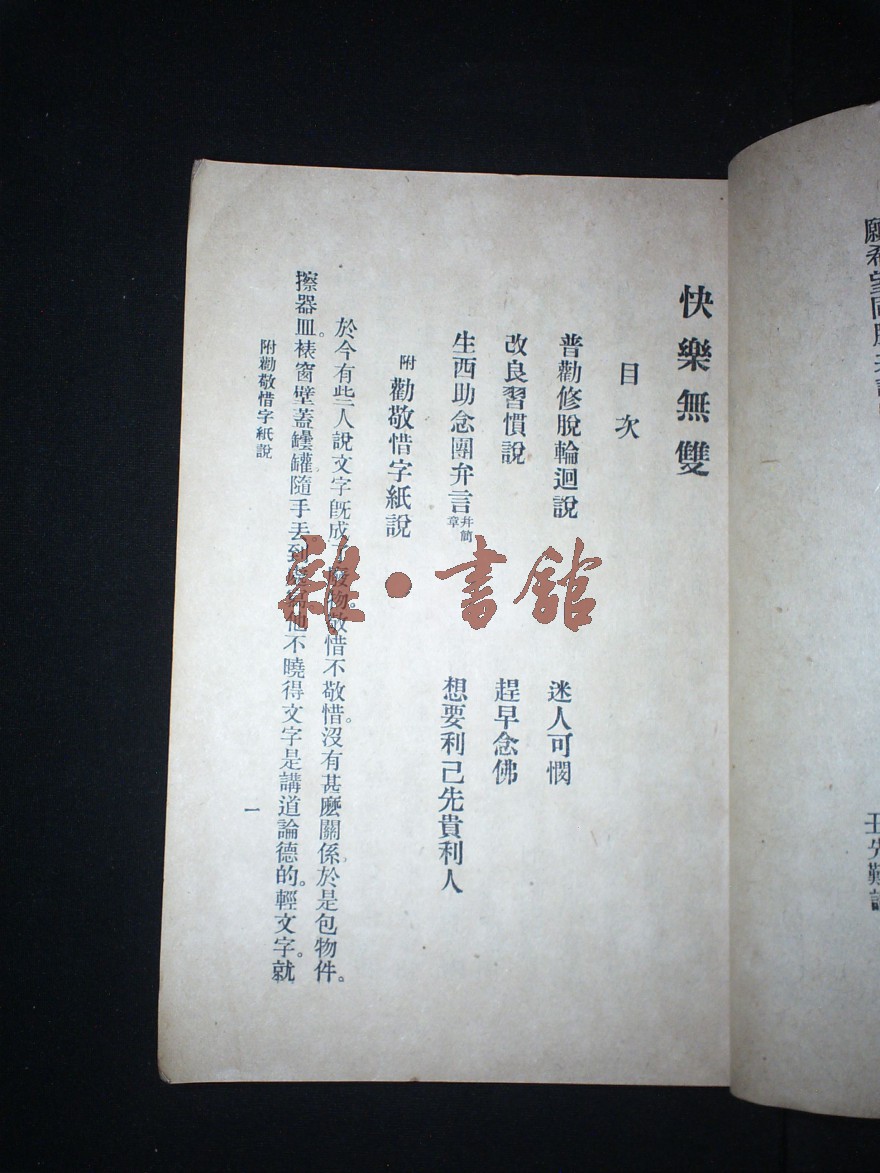 快樂無雙
目次
普勸修脫輪迴說
迷人可憫
改良習慣說
趕早念佛
生西助念團弁言并簡章
想要利己先貴利人
附 勸敬惜字紙說
於今有些人說文字旣成了廢物。敬惜不敬惜。沒有甚麼關係。於是包物件。
擦器皿。裱窗壁蓋罎罐隨手丟。到他不曉得文字是講道論德的。輕文字。就
附勸敬惜字紙說
一
雜·書館